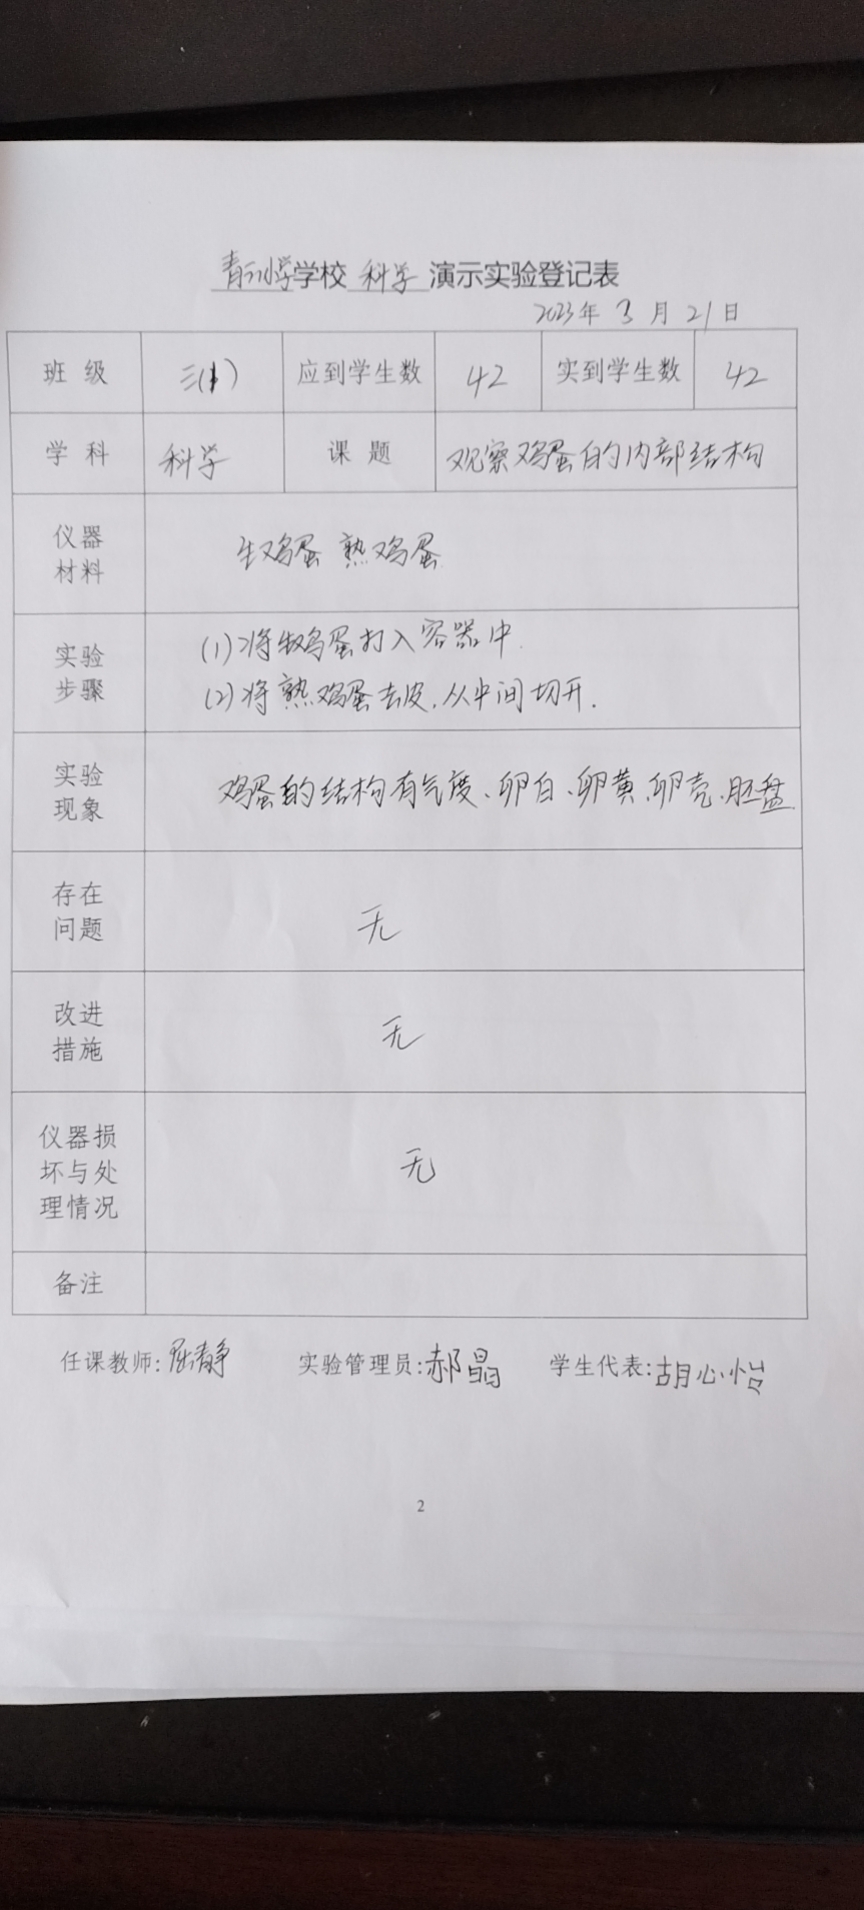 小学学校 科学 演示实验登记表
2023年 3 月 21 日
班级 三(1) 应到学生数 42 实到学生数 42
学科 科学 课题 观察鸡蛋的内部结构
仪器
材料
生鸡蛋 熟鸡蛋
实验
步骤
(1)将生鸡蛋打入容器中.
(2)将熟鸡蛋去皮.从中间切开.
实验
现象
鸡蛋的结构有气度、卵白、卵黄、卵壳、胚盘.
存在
问题
无
改进
措施
无
仪器损
坏与处
理情况
无
备注
任课教师:静 实验管理员:郝晶 学生代表:胡心怡
2